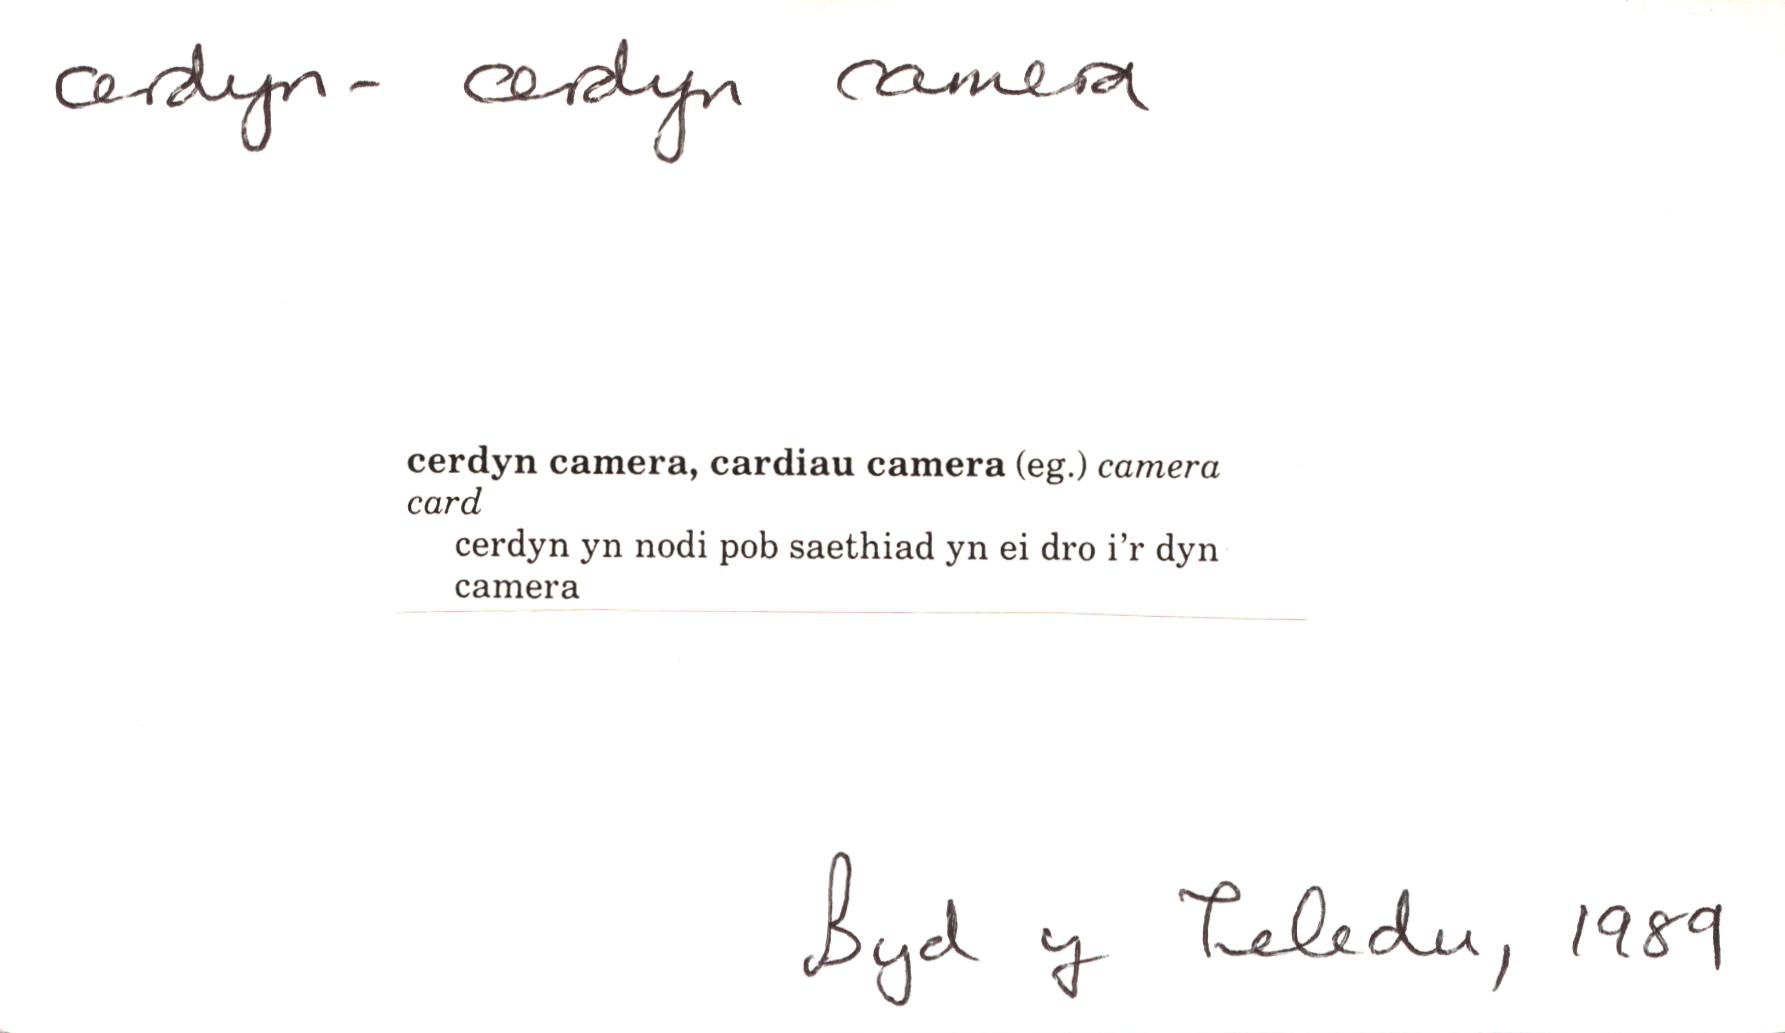 cerdyn - cerdyn camera
cerdyn camera, cardiau camera (eg.) camera
card
cerdyn yn nodi pob saethiad yn ei dro i'r dyn
camera
Byd y Teledu, 1989